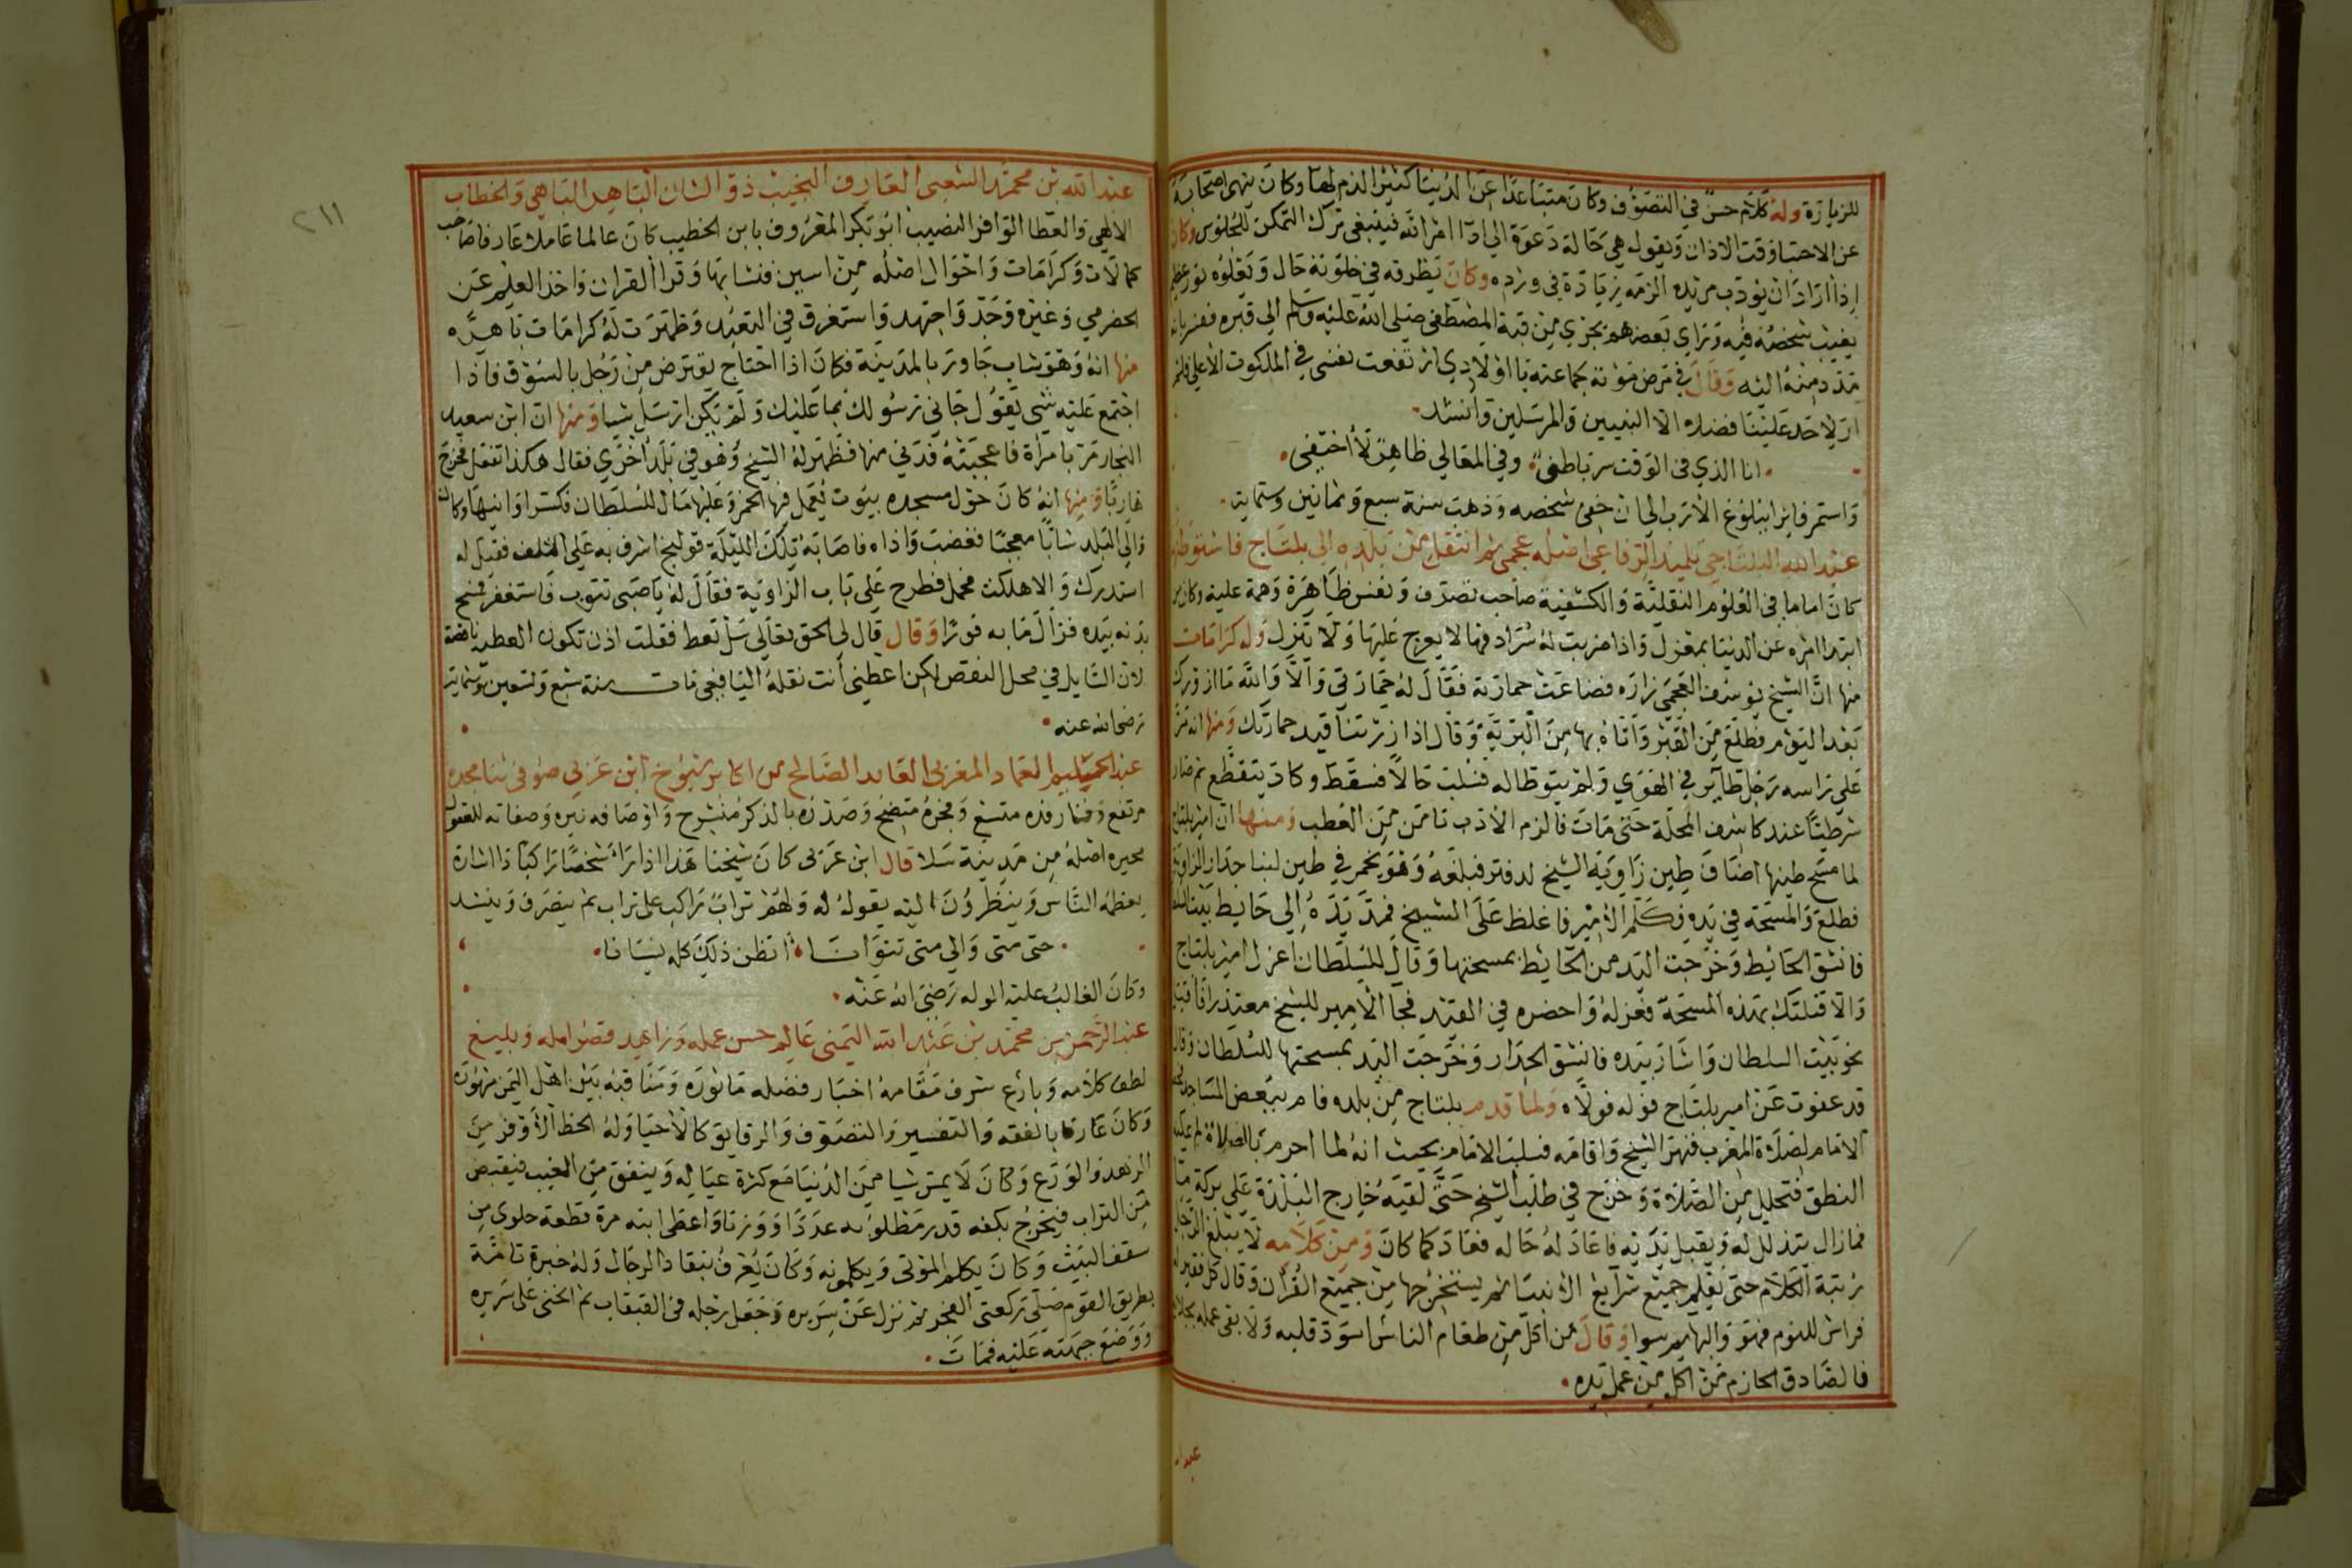 للزيارة وله كلام حسن في التصوف وكان متباعدا عن الدنيا كثير الذم لها وكان ينهى اصحابه
عن الاحتبا وقت الاذان ويقول هي حالة دعوة الى اداء امر الله فينبغي ترك التمكن للجلوس وكان
اذا اراد ان يؤدب مريده الزمه زيادة في ورده وكان يطرقه في خلوته حال ويعلوه نور عظيم
يغيب شخصه فيه وراي بعضهم بحري من قبة المصطفى صلى الله عليه وسلم الى قبره ففسر بانه
مدد منه اليه وقال في مرض موته لجماعته يا اولادي ارتفعت نفسي في الملكوت الاعلى فلم
ار لاحد علينا فضلا الا النبيين والمرسلين وانشد
انا الذي في الوقت سر باطني وفي المعالي ظاهر لا اختفى
واستمر فايزا ببلوغ الارب الى ان خفى شخصه وذهب سنة سبع وثمانين وستماية
عبد الله البلتاجي تلميذ الرفاعي اصله عجمي ثم انتقل من بلده الى بلتاج فاستوطنها
كان اماما في العلوم النقلية والكشفية صاحب تصرف ونفس ظاهرة وهمة علية وكان من
ابتدا امره عن الدنيا بمعزل واذا ضربت له سرادقها لا يعرج عليها ولا ينزل وله كرامات
منها ان الشيخ يوسف العجمي زاره فضاعت حمارته فقال له حمارتي والا والله ما ازورك
بعد اليوم فطلع من القبر واتاه بها من البرية وقال اذا زرتنا قيد حمارتك ومنها انه مر
على راسه رجل طاير في الهوي ولم يتوطا له فسلب حالا فسقط وكاد يتقطع ثم صار
شرطيا عند كاشف المحلة حتى مات فالزم الادب تامن من العطب ومنها ان امير بلتاج
لما مسح طينها اضاف طين زاوية الشيخ لدفتر فبلغه وهو يخمر في طين لبنا جدار الزاوية
فطلع والمسحة في يده فكلم الامير فاغلظ على الشيخ فمد يده الى حايط بيت السلطان
فانشق الحايط وخرجت اليد من الحايط بمسحتها وقال للسلطان اعزل امير بلتاج
والا قتلتك بهذه المسحة فعزله واحضره في القيد فجا الامير للشيخ معتذرا فاقبل
نحو بيت السلطان واشار بيده فانشق الجدار وخرجت اليد بمسحتها للسلطان وقال
قد عفوت عن امير بلتاج فوله فولاه ولما قدم بلتاج من بلده قام ببعض المساجد
الامام لصلاة المغرب فنهر الشيخ واقامه فسلب الامام بحيث انه لما احرم بالصلاة لم يمكنه
النطق فتحلل من الصلاة وخرج في طلب الشيخ حتى لقيه خارج البلدة على بركة ما
فما زال يتذلل له ويقبل يديه فاعاد له حاله فعاد كما كان ومن كلامه لا يبلغ الرجل
رتبة الكلام حتى يعلم جميع شرايع الانبيا ثم يستخرجها من جميع القران وقال كل فقير له
فراش للنوم فهو والبهايم سوا وقال من اكل من طعام الناس اسود قلبه ولا بقى عمله
فالصادق الحازم من اكل من عمل يده
عبد الله
٢١١
عبد الله بن محمد الشعبي العارف النجيب ذو الشان الباهر الباهي والخطاب
الالهي والعطا الوافر النصيب ابو بكر المعروف بابن الخطيب كان عالما عاملا عارفا صاحب
كمالات وكرامات واحوال اصله من اسبين فنشا بها وقرا القران واخذ العلم عن
الحضرمي وغيره وجد واجتهد واستغرق في التعبد وظهرت له كرامات باهره
منها انه وهو شاب جاور بالمدينة فكان اذا احتاج يقترض من رجل بالسوق فاذا
اجتمع عليه شي يقول جاني رسولك بما عليك ولم يكن ارسل شيا ومنها ان ابن سعيد
النجار مر بامراة فاعجبته فدنى منها فظهر له الشيخ وهو في بلد اخرى فقال هكذا تفعل فخرج
هاربا ومنها انه كان حول مسجده بيوت يعمل فيها الخمر وعليها مال للسلطان فكسر اوانيها وكان
والي البلد شابا معجبا فغضب واذاه فاصابه تلك الليلة قولنج اشرف به على التلف فقيل له
استدرك والا هلكت فحمل فطرح على باب الزاوية فقال له يا صبي تتوب فاستغفر فمسح
بدنه بيده فزال ما به فورا وقال قال لي الحق تعالى سل تعط فقلت اذن تكون العطية ناقصة
لان السايل في محل النقص لكن اعطني أنت نقله اليافعي مات سنة سبع وتسعين وستماية
رضى الله عنه
عبد الحليم العماد المغربي العابد الصالح من اكابر شيوخ ابن عربي صوفي بنا مجده
مرتفع وفنا رفده متسع وفجره متضح وصدره بالذكر منشرح واوصافه نيره وصفاته للعقول
محيره اصله من مدينة سلا قال ابن عربي كان شيخنا هذا اذا راى شخصا راكبا ذا اشارة
يعظمه الناس وينظرون اليه يقول له ولهم تراب راكب على تراب ثم ينصرف وينشد
حتى متى والى متى تتوانا اتظن ذلك كله نسيانا
وكان الغالب عليه الوله رضى الله عنه
عبد الرحمن بن محمد بن عبد الله اليمني عالم حسن عمله وزاهد قصر امله وبليغ
لطف كلامه وبارع شرف مقامه اخبار فضله ماثوره ومناقبه بين اهل اليمن مشهوره
وكان عارفا بالفقه والتفسير والتصوف والرقايق كالاحيا وله الحظ الاوفر من
الزهد والورع وكان لا يمس شيا من الدنيا مع كثرة عياله وينفق من الغيب فيقبض
من التراب فيخرج بكفه قدر مطلوبه عددا ووزنا واعطى ابنه مرة قطعة حلوى من
سقف البيت وكان يكلم الموتى ويكلمونه وكان يعرف بنقاد الرجال وله خبرة تامة
بطريق القوم صلى ركعتي الفجر ثم نزل عن سريره وجعل رجله في القبقاب ثم انحنى على سريره
ووضع جبهته عليه فمات